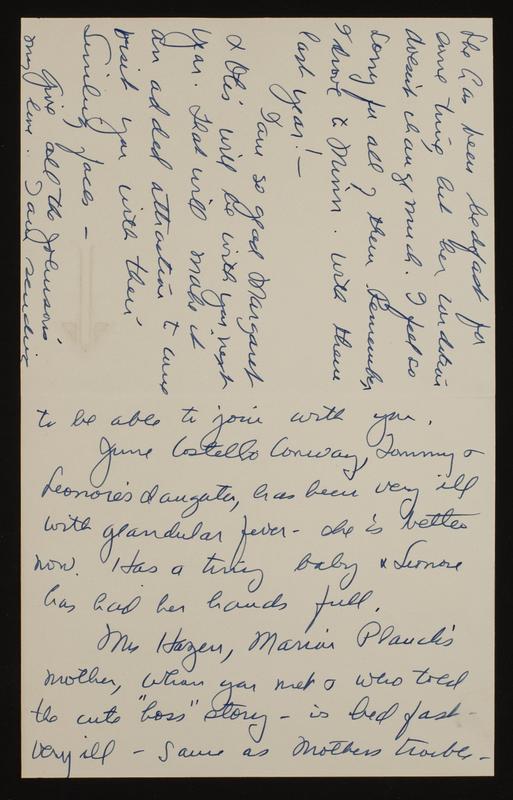 to be able to join with you.
June Costello Conway, Tommy &
Leonore's daughter, has been very ill
with glandular fever - she is better
now. Has a tiny baby & Leonore
has had her hands full.
Mrs Hazen, Marion Plauché's
mother, whom you met & who told
the cute "boss" story - is bed fast -
very ill - same as Mothers trouble -
She has been bedfast for
some time but her condition
doesn't change much. I feel so
sorry for all of them. Remember
I drove to Minn. with them
last year! -
I am so glad Margaret
& Otis will be with you next
year. That will make it
an added attraction to come
visit you with their
smiling faces -
Give all the Johnsons
my love. I am sending